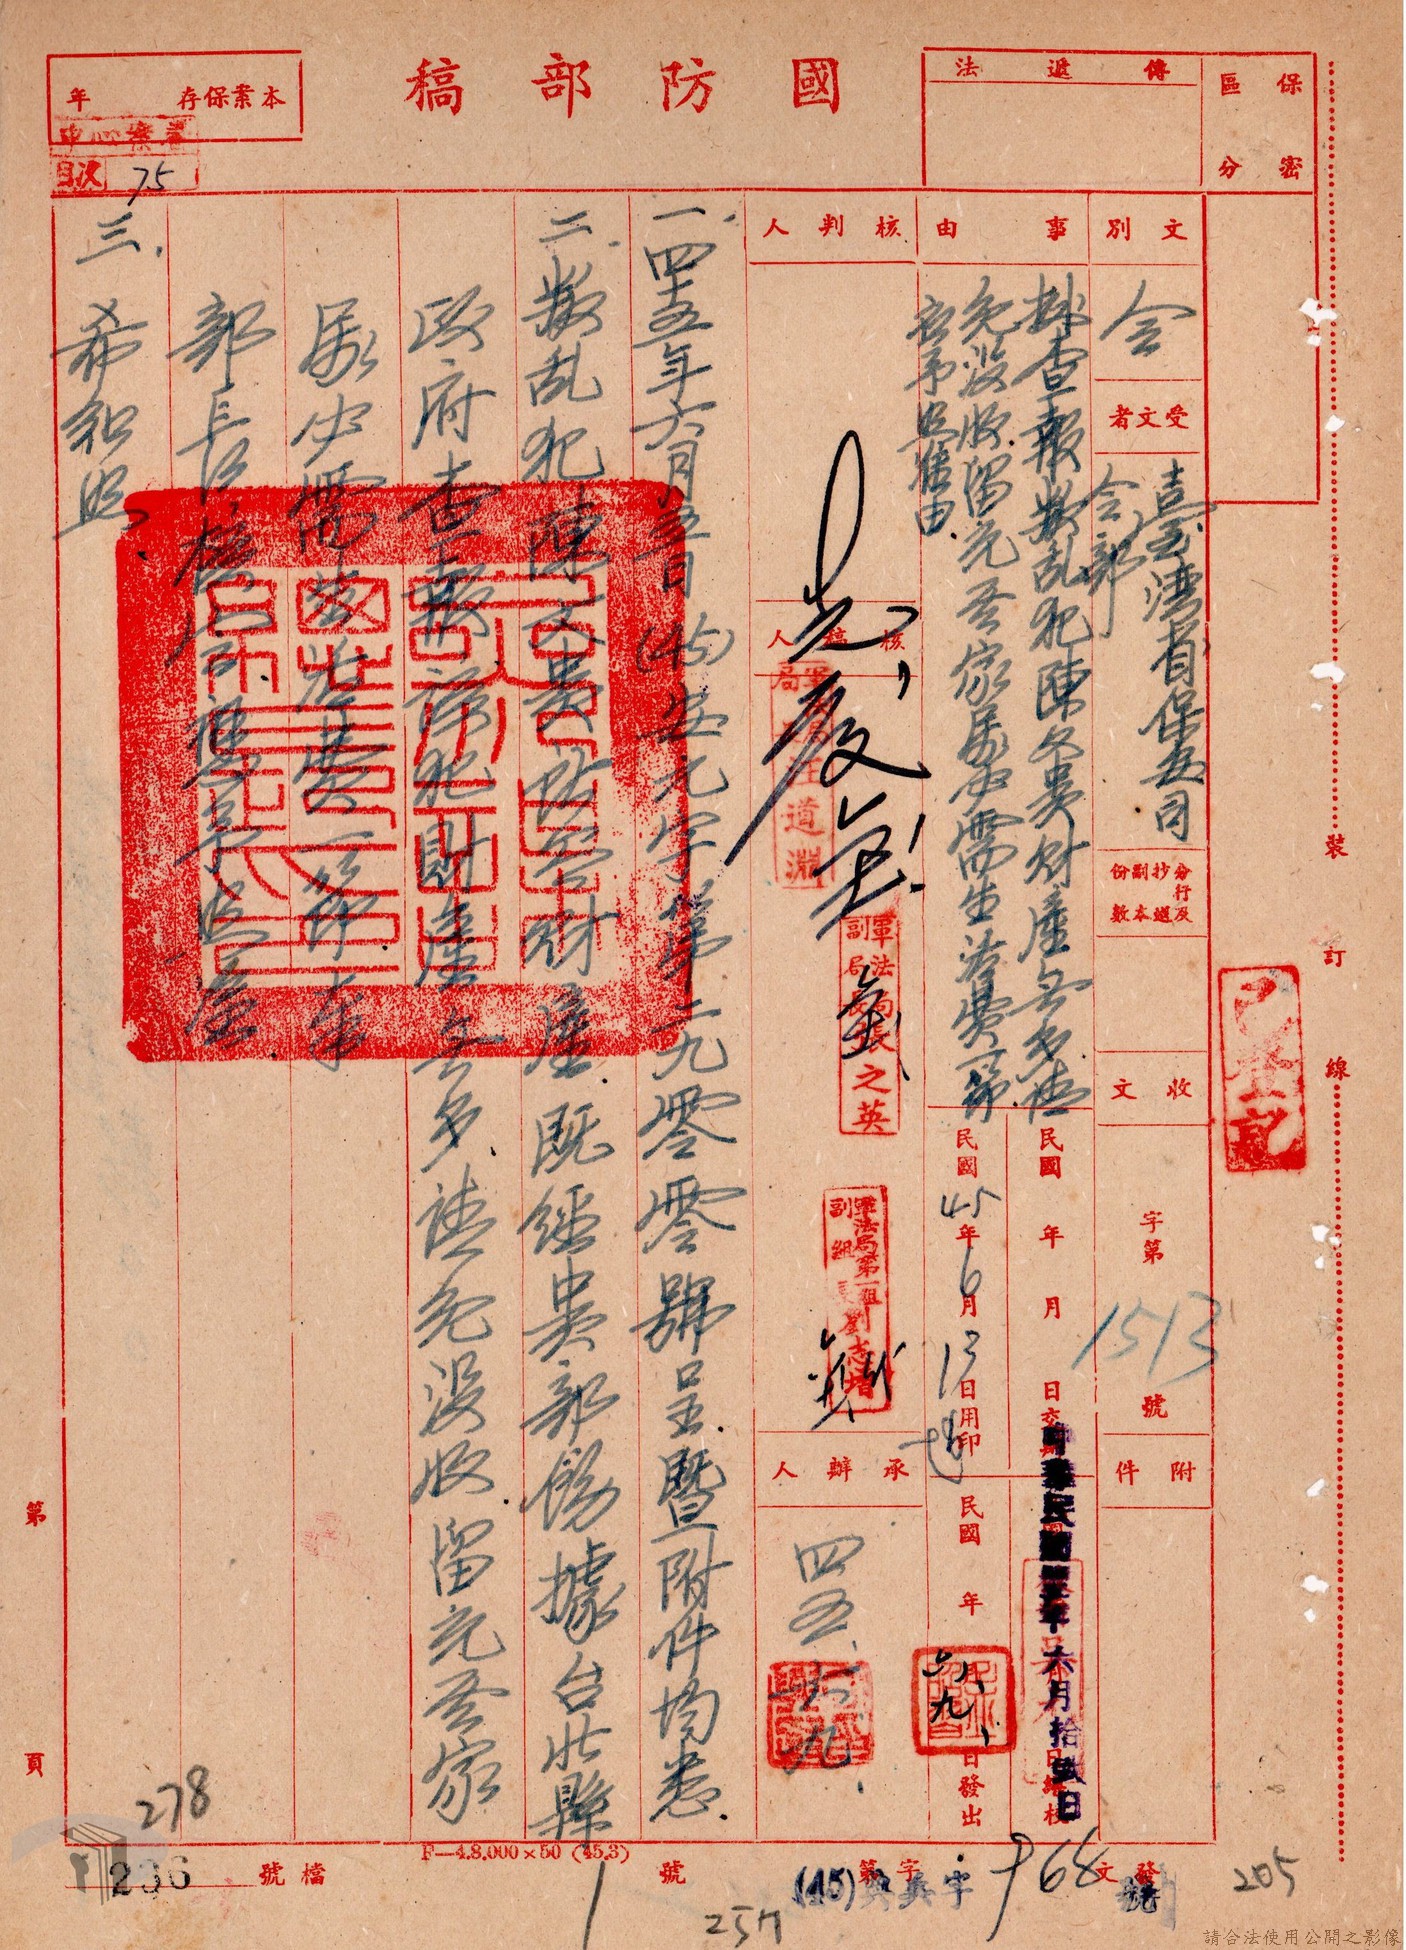 國防部稿
保密
區分
傳遞法
本案保存 年
目次 75
文別
令
受文者
臺灣省保安司
令部
分行及
抄送
副本
份數
收文
字第
1513
號
附件
事由
據查報叛乱犯陳文貴財產無多請
免沒收留充其家屬必需生活費一節
應予照准由
民國 年 月 日交辦
中華民國 年六月拾貳日
民國45年6月13日用印
民國 年 日發出
六、九、
核判人
核稿人
軍法局 汪道淵
軍法局副局長 之英
軍法局第一組副組長劉志增
承辦人
四五、六、九、
一、四十五年六月五日(45)安元字第二九零零號呈暨附件均悉.
二、叛乱犯陳文貴所有財產既經貴部飭據台北縣
政府查報該犯財產無多請免沒收留充其家
屬必需生活費一節奉
部長 核 應予照准
三、希知照、
已登記
裝
訂
線
第
頁
278
236
檔號
F—4.8.000×50 (45.3)
號
257
字第
(45)
字
768
發文
號
205
請合法使用公開之影像